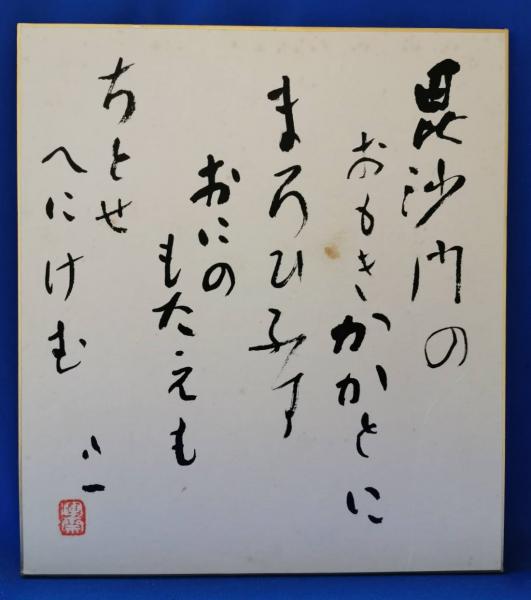 毘沙門の
おもきかかとに
まろひふす
おにの
もたえも
ちとせ
へにけむ
八一